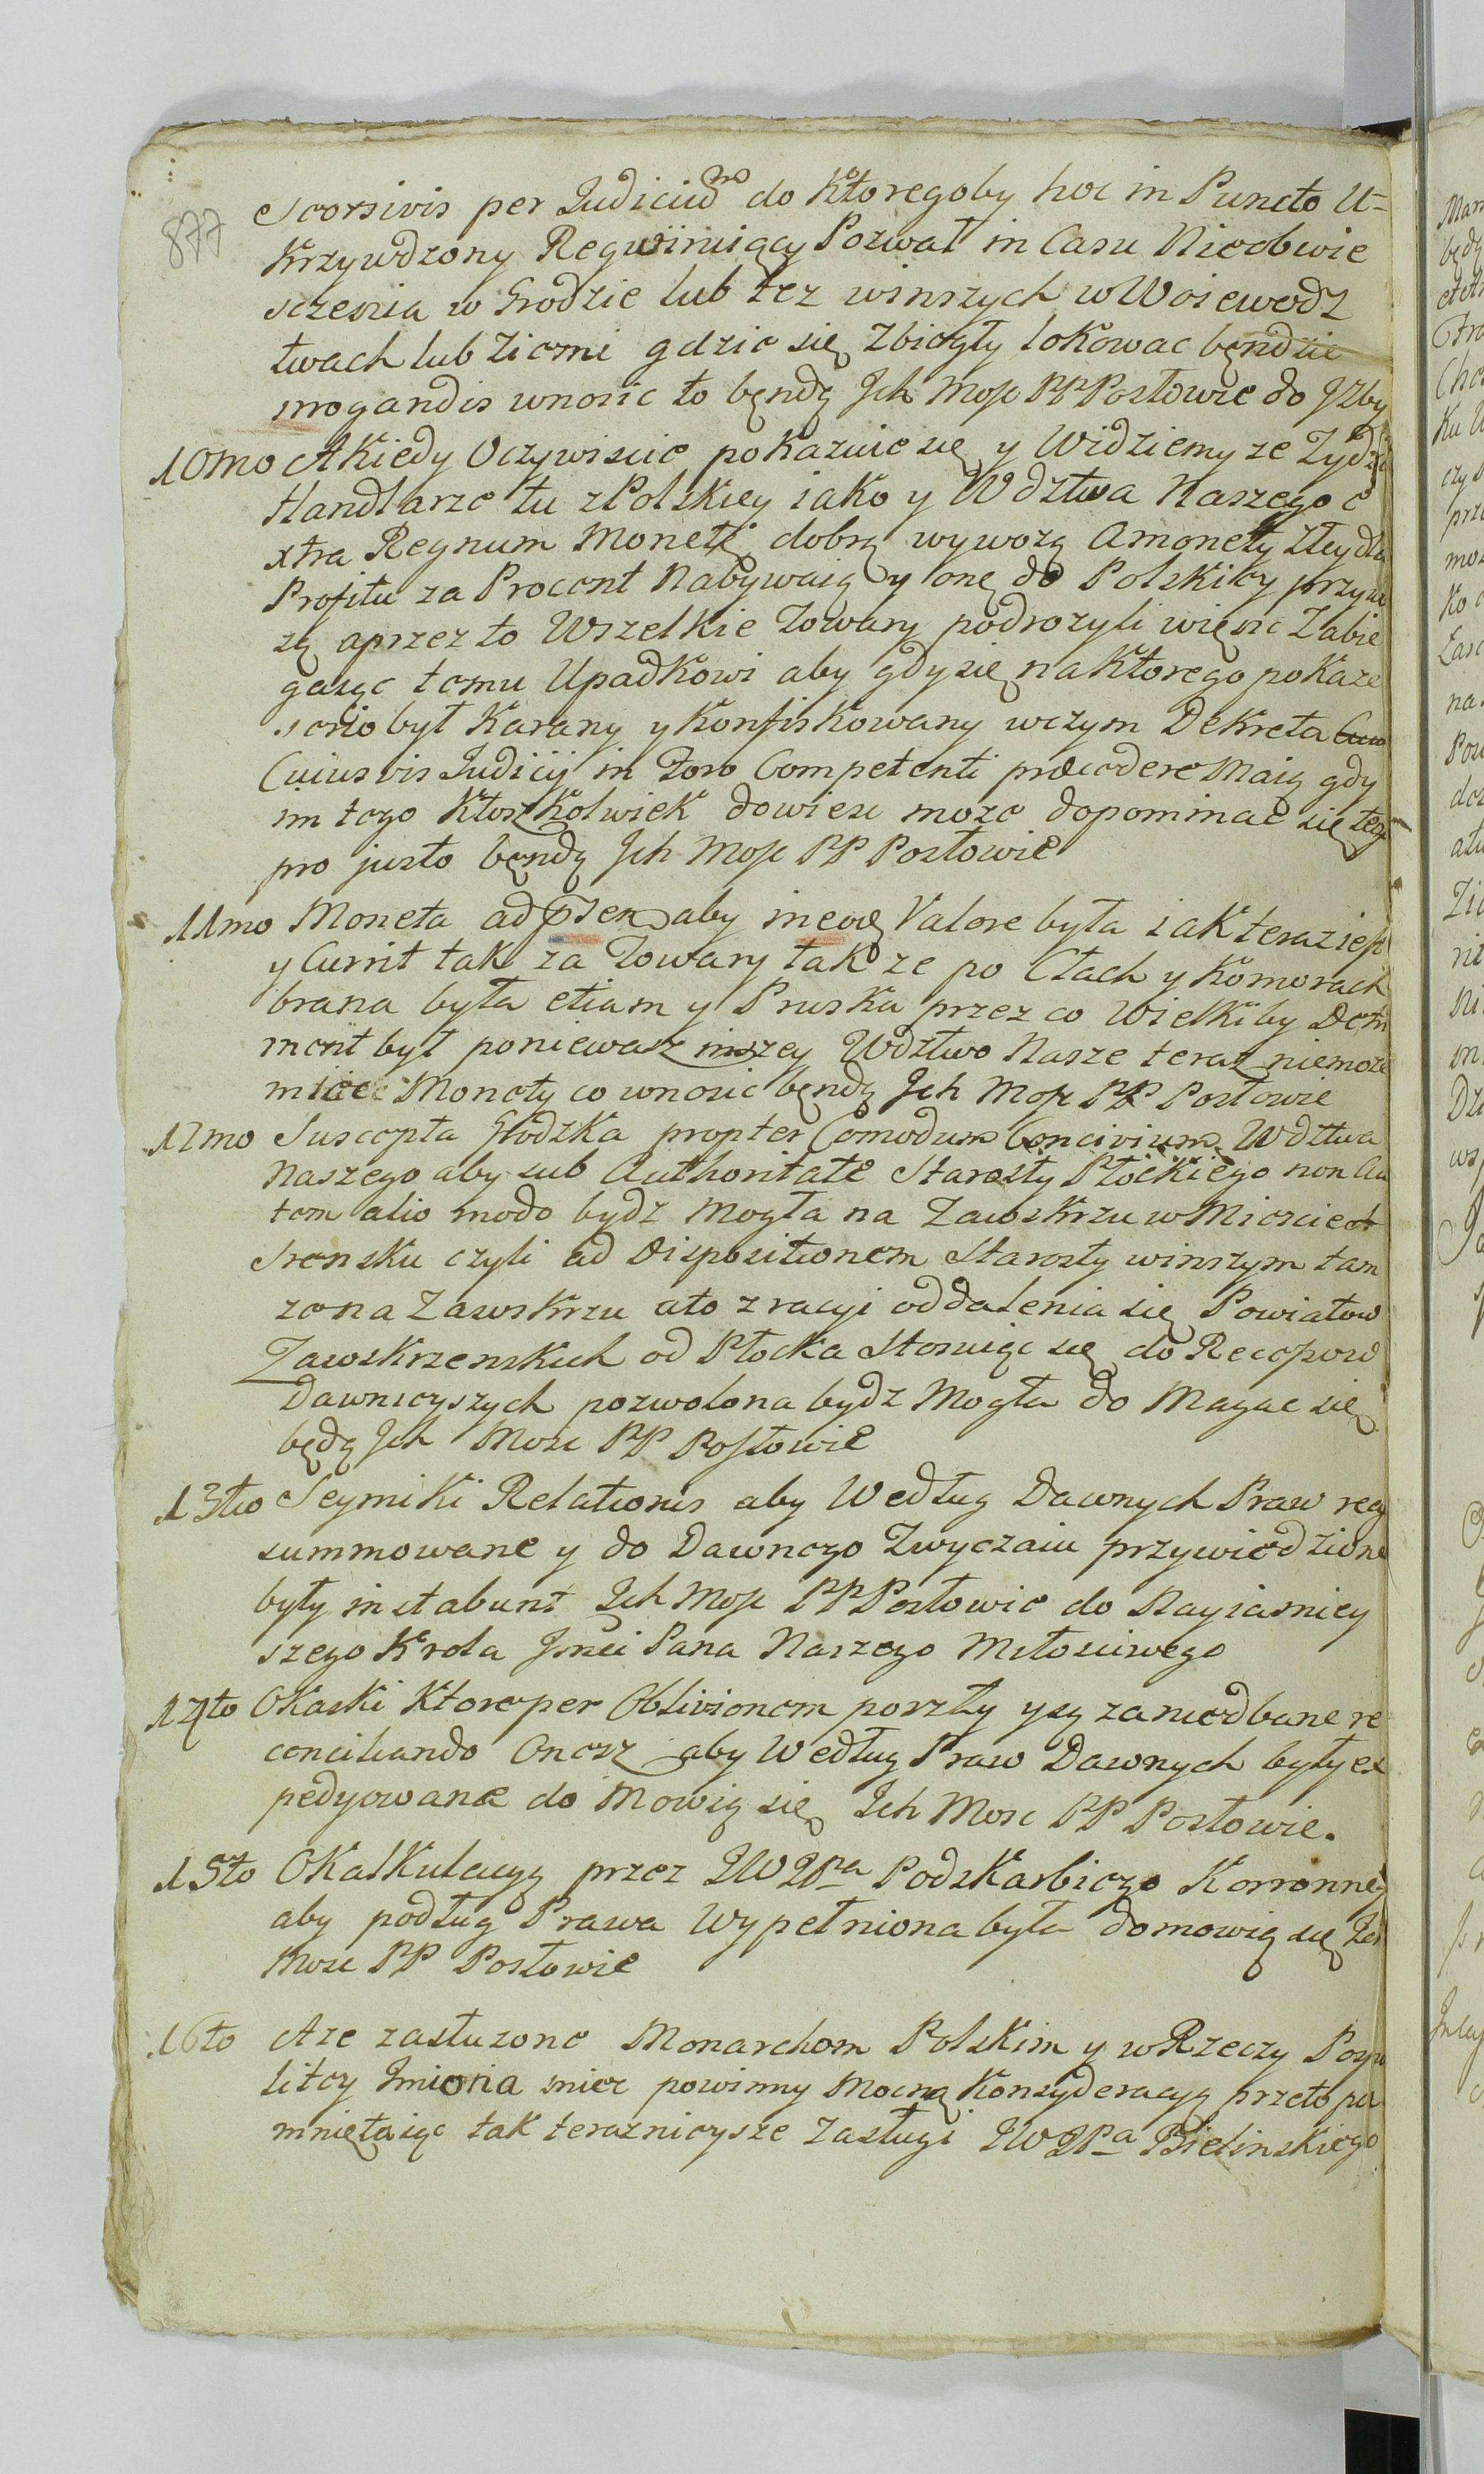 877
Scorsivis per Judicium do Ktoregoby hoc in Puncto U=
Krzywdzony Regwiruiący Pozwał in Casu Nieobwie
sczenia w Grodzie lub tez winszych w Woiewodz
twach lub Ziemi gdzie się Zbiegły lokowac będzie
irrogandis wnosic to bęndą Jch Mosc PP Posłowie do Jzby
10mo A Kiedy Oczywiscie pokazuie się y Widziemy ze Zydzi
Handlarze tu z Polskiey iako y Wdztwa Naszego e
xtra Regnum Monetę dobrą wywozą a monety złey dla
Profitu za Procent Nabywaią y onę do Polskiey przywo
zą aprzez to Wszelkie Towary podrozyli więsc Zabie
gaiąc temu Upadkowi aby gdy się na Ktorego pokaze
serio był Karany y Konfiskowany w czym Dekreta
Cuiusvis Judicij in Foro Competenti procedere Maią gdy
im tego Ktosz Kolwiek dowiesc moze dopominac się tego
pro justo bęndą Jch Mosc PP Posłowie
11mo Moneta ad psens aby in eodę Valore była iak teraz iest
y Currit tak za Towary tak ze po Cłach y Komorach
brana była etiam y Pruska przez co Wielki by Detri
ment był poniewasz inszey Wdztwo Nasze teraz niemoze
miec Monety co wnosic bęndą Jch Mosc PP Posłowie
12mo Suscepta Grodzka propter Comodum Concivium Wdztwa
Naszego aby sub Authoritate Starosty Płockiego non au
tem alio modo bydz Mogła na Zawskrzu w Miescie
Srensku czyli ad Dispositionem Starosty winszym tam
ze na Zawskrzu ato z racyi oddalenia się Powiatow
Zawskrzenskich od Płocka Stosuiąc się do Recepow
Dawnieyszych pozwolona bydz Mogła do Magac się
będą Jch Mosc PP Posłowie
13tio Seymiki Relationis aby Według Dawnych Praw rea
summowane y do Dawnego Zwyczaiu przywiedzione
były instabunt Jch Mosc PP Posłowie do Nayiasniey
szego Krola Jmci Pana Naszego Miłosciwego
14to O Kaski Ktore per Oblivionem poszły y są zaniedbane re
conciliando Onesz aby Według Praw Dawnych były ex
pedyowane do Mowią się Jch Mosc PP Posłowie.
15to O Kalkulacyą przez JW JPa Podskarbiego Koronneg
aby podług Prawa Wypełniona była domowią się Jch
Mosc PP Posłowie
16to A ze zasłuzone Monarchom Polskim y w Rzeczy Pospo
litey Jmiona miec powinny Mocną Konsyderacyą przeto pa
mniętaiąc tak teraznieysze Zasługi JW JPa Bielinskiego